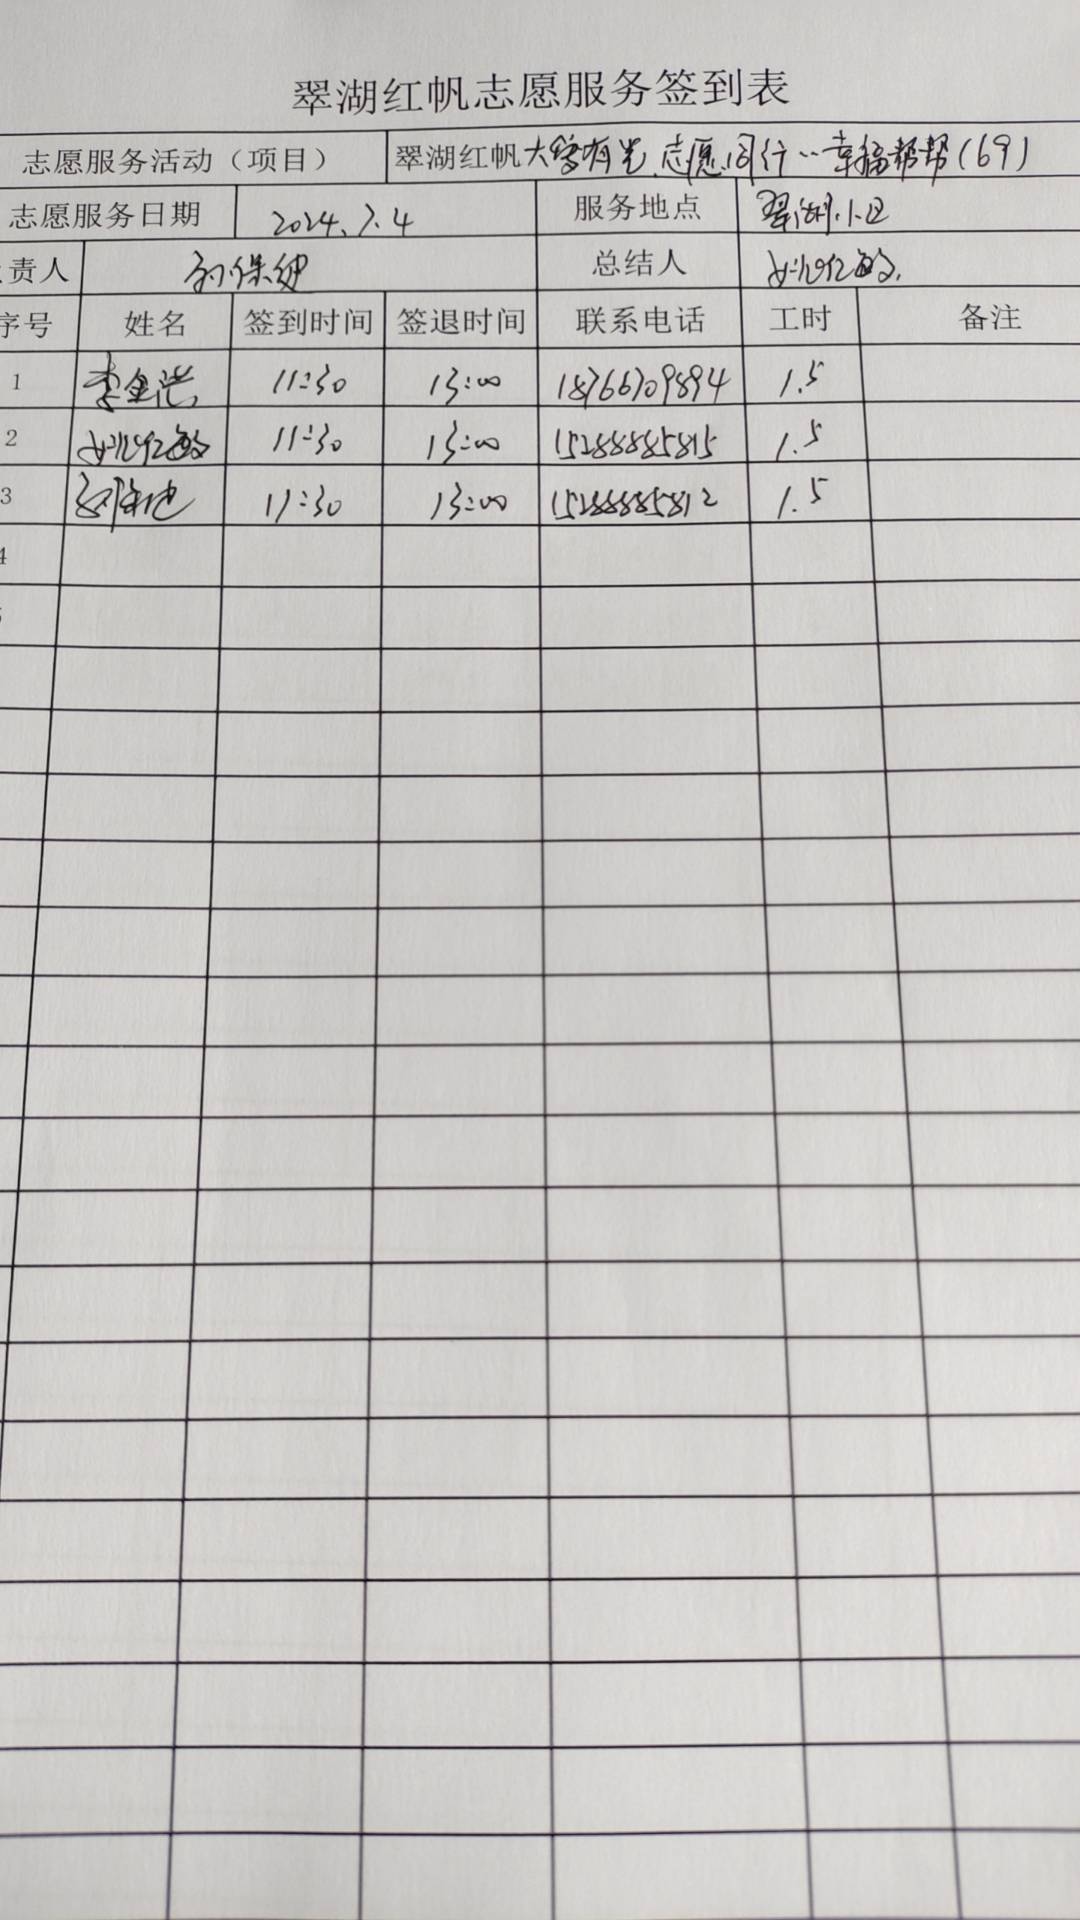 翠湖红帆志愿服务签到表
志愿服务活动（项目） 翠湖红帆大爱有光 志愿同行··幸福帮帮(69)
志愿服务日期 2024.7.4 服务地点 翠湖小区
责人 总结人
序号 姓名 签到时间 签退时间 联系电话 工时 备注
1 11:30 13:00 18766709894 1.5
2 11:30 13:00 15288885815 1.5
3 11:30 13:00 15288885812 1.5
4